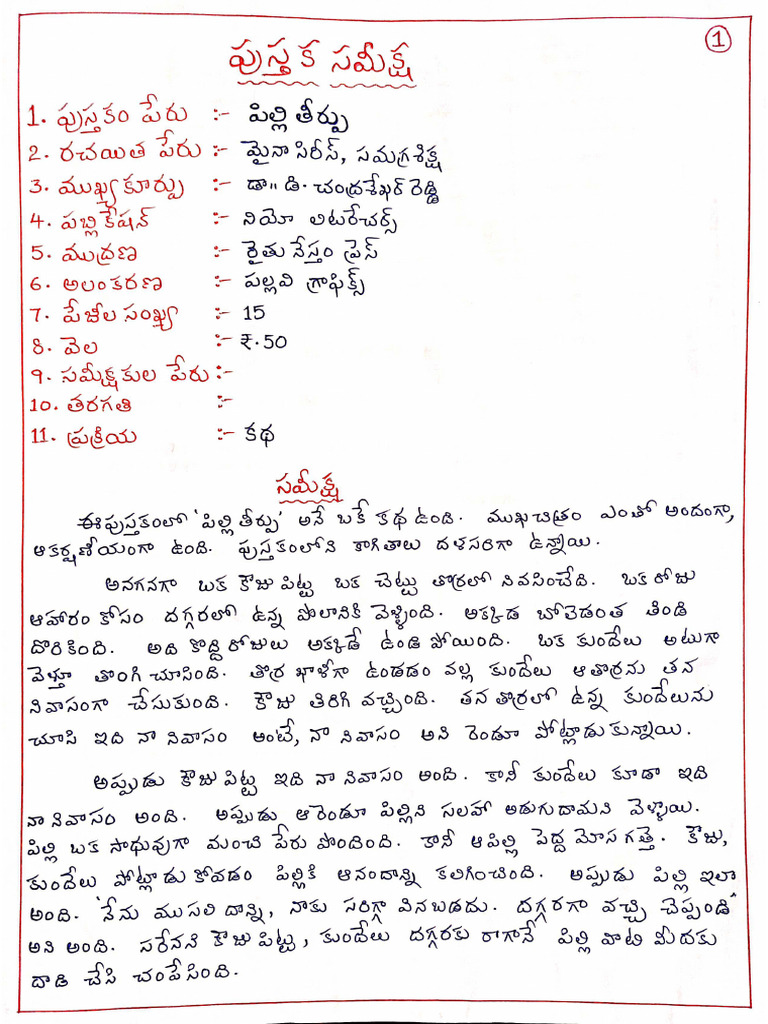 1
పుస్తక సమీక్ష
1. పుస్తకం పేరు :- పిల్లి తీర్పు
2. రచయిత పేరు :- మైనా సిరీస్, సమగ్రశిక్ష
3. ముఖ్యకూర్పు :- డా॥ డి. చంద్రశేఖర్ రెడ్డి
4. పబ్లికేషన్ :- నియో లిటరేచర్స్
5. ముద్రణ :- రైతు నేస్తం ప్రెస్
6. అలంకరణ :- పల్లవి గ్రాఫిక్స్
7. పేజీల సంఖ్య :- 15
8. వెల :- ₹.50
9. సమీక్షకుల పేరు :-
10. తరగతి :-
11. ప్రక్రియ :- కథ
సమీక్ష
ఈ పుస్తకంలో 'పిల్లి తీర్పు' అనే ఒకే కథ ఉంది. ముఖచిత్రం ఎంతో అందంగా,
ఆకర్షణీయంగా ఉంది. పుస్తకంలోని కాగితాలు దళసరిగా ఉన్నాయి.
అనగనగా ఒక కౌజు పిట్ట ఒక చెట్టు తొర్రలో నివసించేది. ఒక రోజు
ఆహారం కోసం దగ్గరలో ఉన్న పొలానికి వెళ్ళింది. అక్కడ బోలెడంత తిండి
దొరికింది. అది కొద్ది రోజులు అక్కడే ఉండి పోయింది. ఒక కుందేలు అటుగా
వెళ్తూ తొంగి చూసింది. తొర్ర ఖాళీగా ఉండడం వల్ల కుందేలు ఆ తొర్రను తన
నివాసంగా చేసుకుంది. కౌజు తిరిగి వచ్చింది. తన తొర్రలో ఉన్న కుందేలును
చూసి ఇది నా నివాసం అంటే, నా నివాసం అని రెండూ పోట్లాడుకున్నాయి.
అప్పుడు కౌజు పిట్ట ఇది నా నివాసం అంది. కానీ కుందేలు కూడా ఇది
నా నివాసం అంది. అప్పుడు ఆ రెండూ పిల్లిని సలహా అడుగుదామని వెళ్ళాయి.
పిల్లి ఒక సాధువుగా మంచి పేరు పొందింది. కానీ ఆ పిల్లి పెద్ద మోసగత్తె. కౌజు,
కుందేలు పోట్లాడుకోవడం పిల్లికి ఆనందాన్ని కలిగించింది. అప్పుడు పిల్లి ఇలా
అంది. 'నేను ముసలి దాన్ని, నాకు సరిగ్గా వినబడదు. దగ్గరగా వచ్చి చెప్పండి'
అని అంది. సరేనని కౌజు పిట్ట, కుందేలు దగ్గరకు రాగానే పిల్లి వాటి మీదకు
దాడి చేసి చంపేసింది.